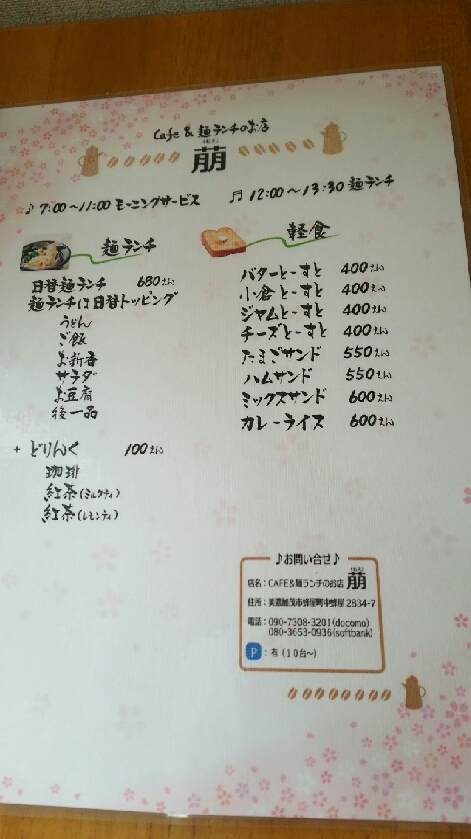 Cafe & 麺ランチのお店
萠
♪ 7:00～11:00 モーニングサービス
♬ 12:00～13:30 麺ランチ
麺ランチ
日替麺ランチ 680えん
麺ランチは日替トッピング
うどん
ご飯
お新香
サラダ
お豆腐
後一品
+ どりんく 100えん
珈琲
紅茶(ミルクティ)
紅茶(レモンティ)
軽食
バターとーすと 400えん
小倉とーすと 400えん
ジャムとーすと 400えん
チーズとーすと 400えん
たまごサンド 550えん
ハムサンド 550えん
ミックスサンド 600えん
カレーライス 600えん
♪お問い合せ♪
店名：CAFE&麺ランチのお店 萠
住所：美濃加茂市蜂屋町中蜂屋2834-7
電話：090-7308-3201(docomo)
080-3653-0936(softbank)
P：有(10台～)